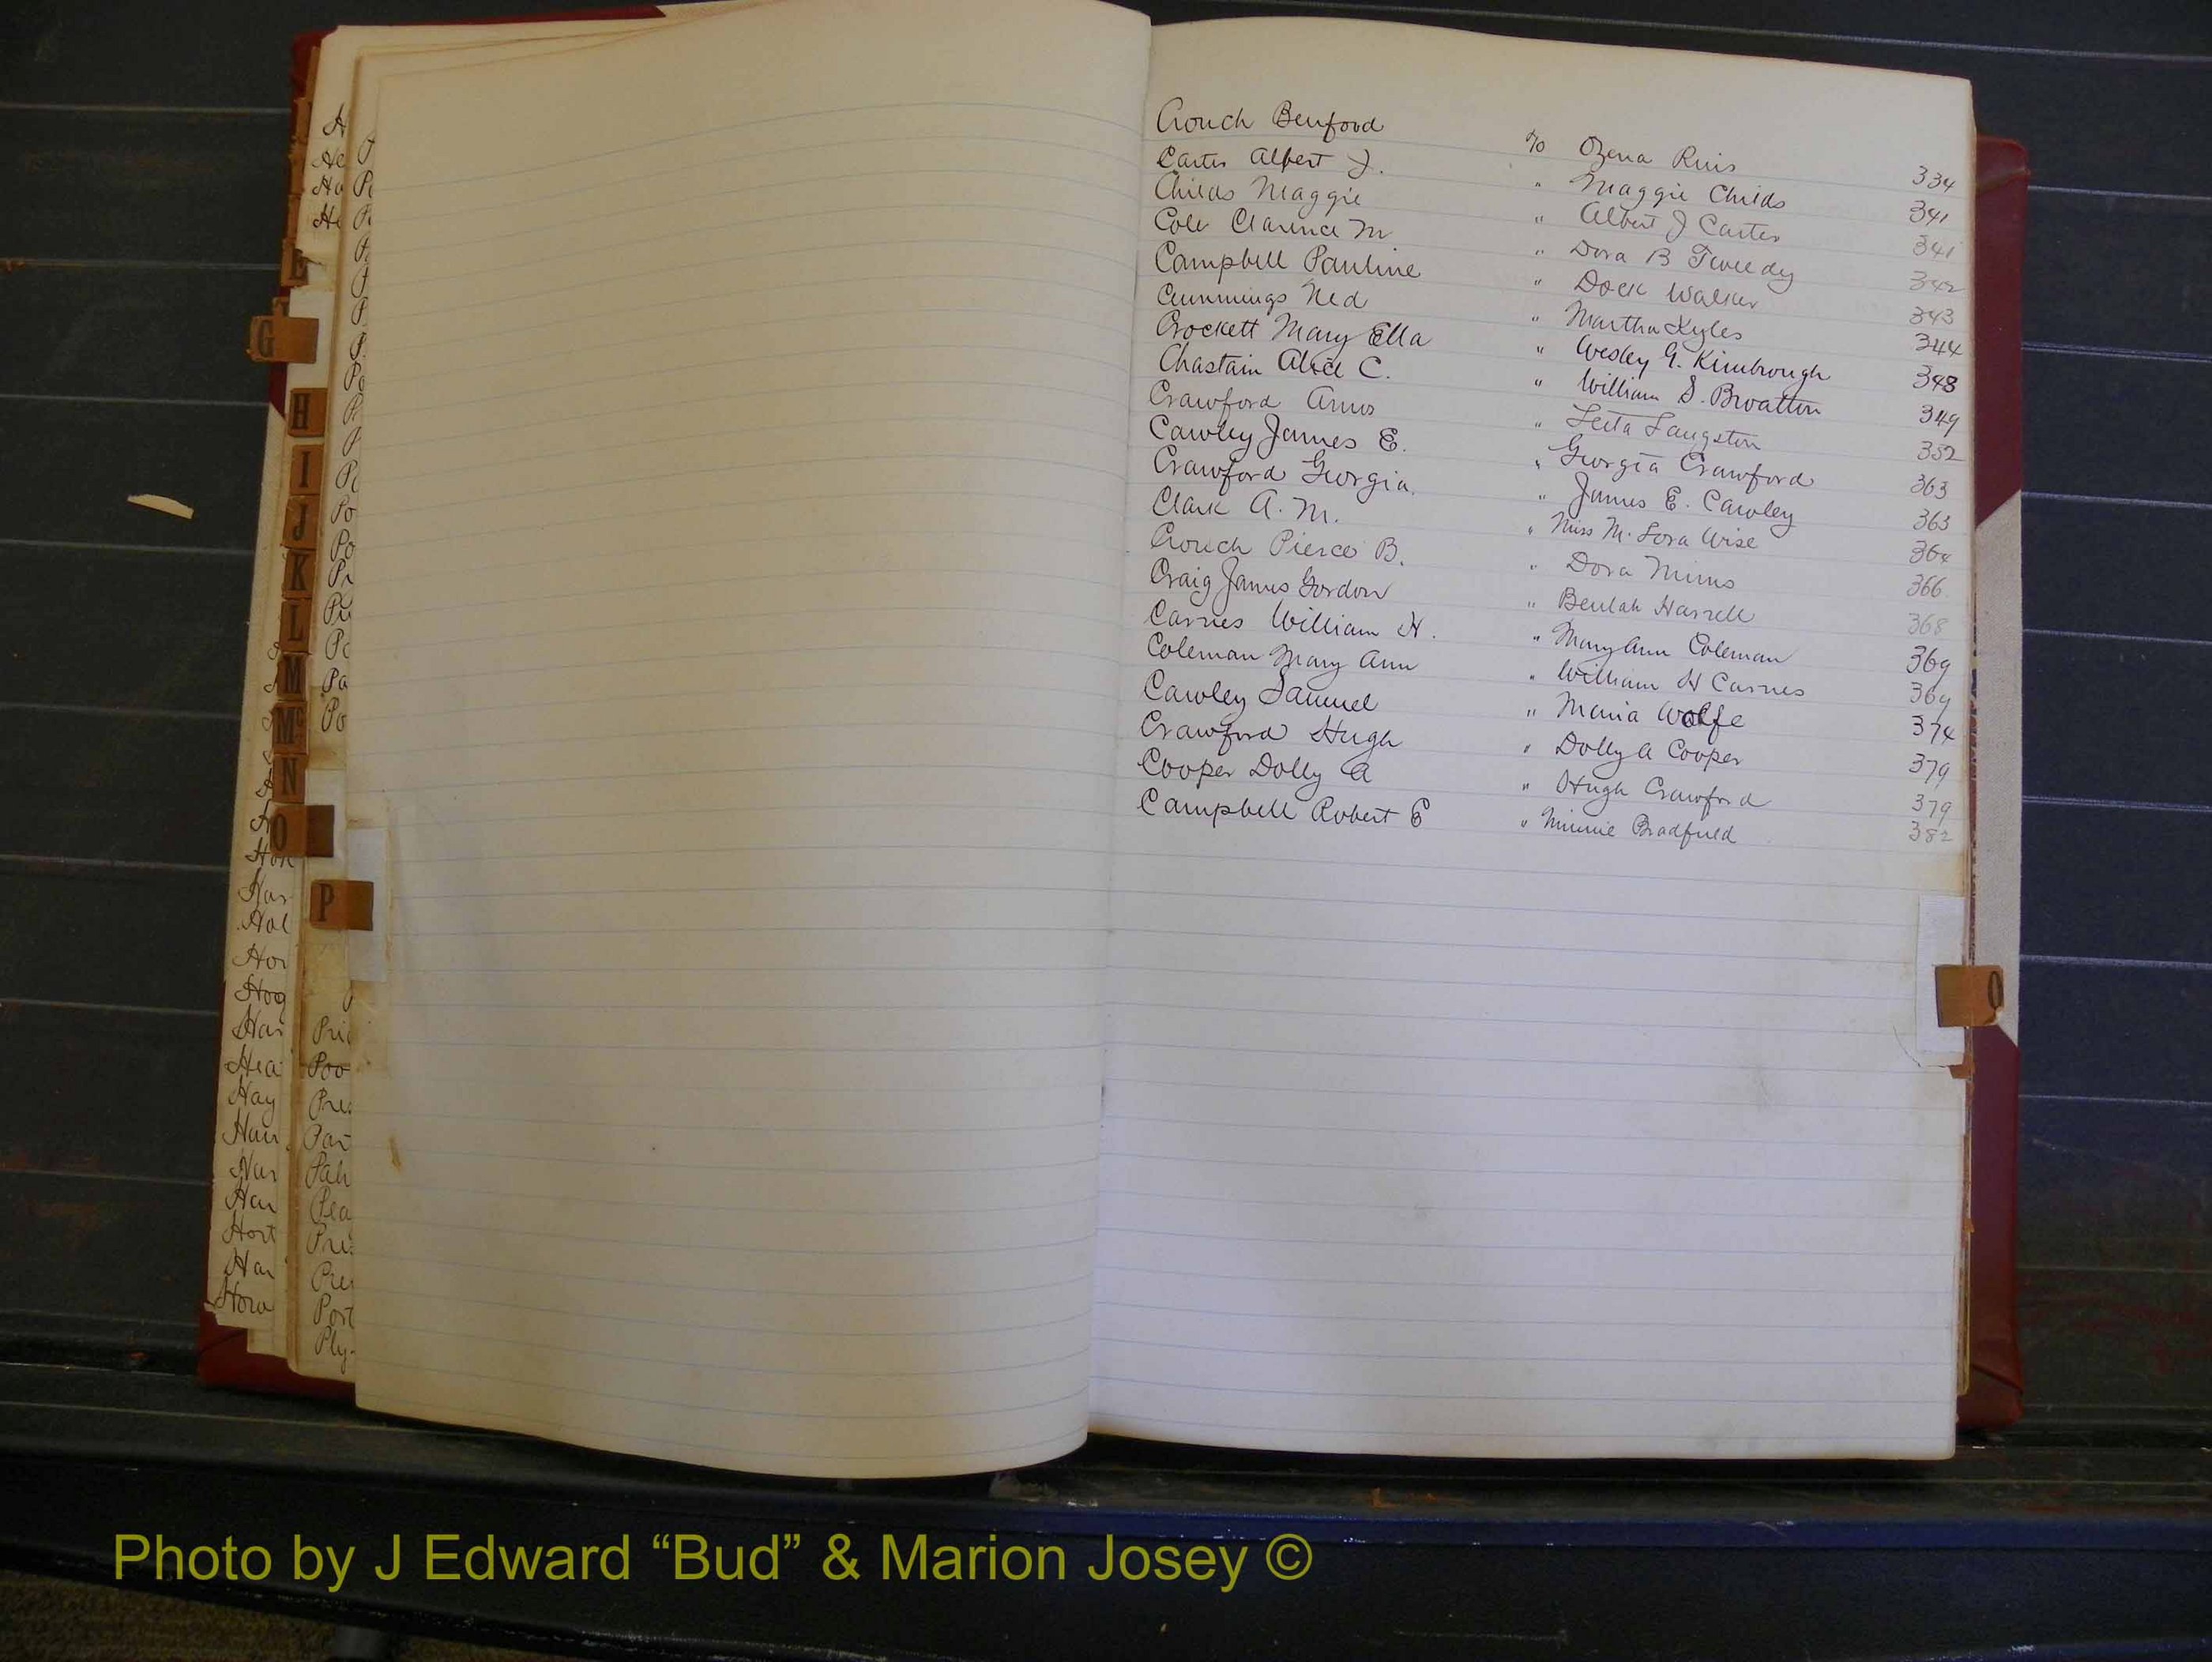 Crouch Benford % Ozena Ruis 334
Carter Albert J. " Maggie Childs 341
Childs Maggie " Albert J Carter 341
Cole Clarence M " Dora B Tweedy 342
Campbell Pauline " Dock Walker 343
Cummings Ned " Martha Kyles 344
Crockett Mary Ella " Wesley G. Kimbrough 348
Chastain Alice C. " William S. Broatton 349
Crawford Amos " Leita Langston 352
Cawley James E. " Georgia Crawford 363
Crawford Georgia " James E. Cawley 363
Clark A. M. " Miss M. Lora Wise 364
Crouch Pierce B. " Dora Mims 366
Craig James Gordon " Beulah Harrell 368
Carnes William H. " Mary Ann Coleman 369
Coleman Mary Ann " William H Carnes 369
Cawley Samuel " Maria Wolfe 374
Crawford Hugh " Dolly A Cooper 379
Cooper Dolly A " Hugh Crawford 379
Campbell Robert E " Minnie Bradfield 382
E
G
H
I
J
K
L
M
Mc
N
O
P
O
Photo by J Edward “Bud” & Marion Josey ©